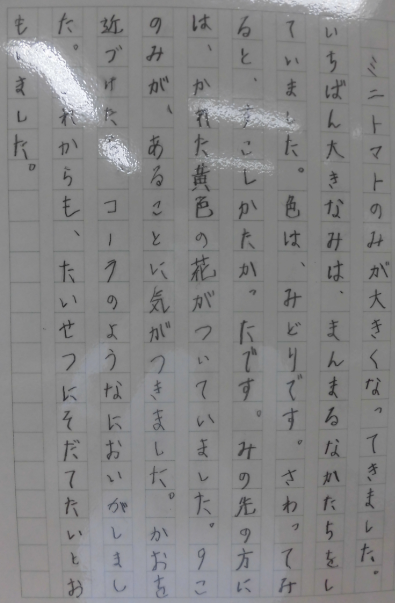 ミニトマトのみが大きくなってきました。
いちばん大きなみは、まんまるなかたちをし
ていました。色は、みどりです。さわってみ
ると、すこしかたかったです。みの先の方に
は、かれた黄色の花がついていました。9こ
のみが、あることに気がつきました。かおを
近づけたら、コーラのようなにおいがしまし
た。これからも、たいせつにそだてたいとお
もいました。